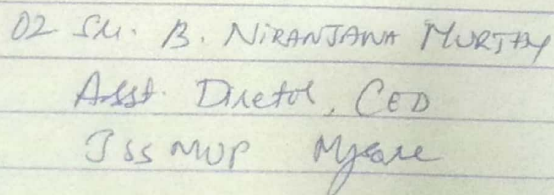 02 Sri. B. NIRANJANA MURTHY
Asst. Director, CED
JSS MVP Mysore